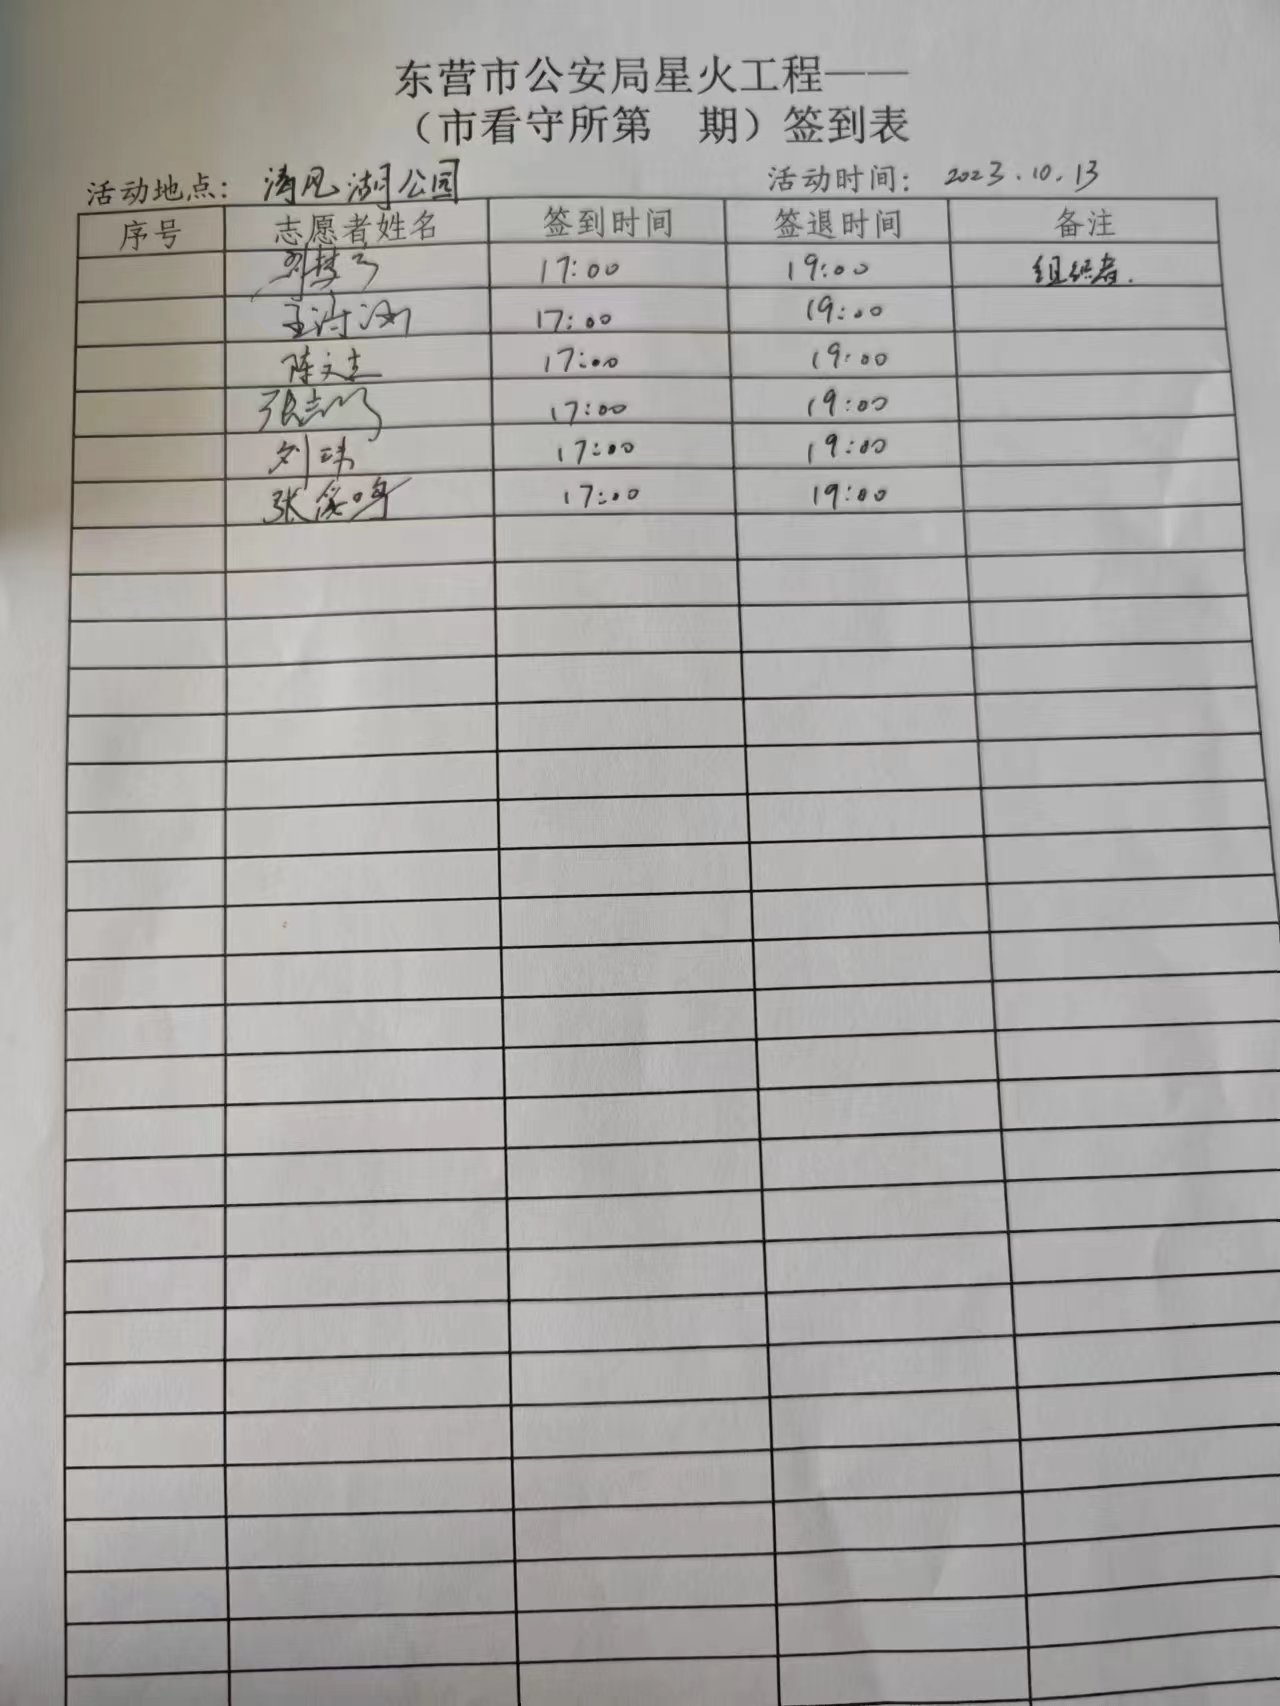 东营市公安局星火工程——
（市看守所第 期）签到表
活动地点： 清风湖公园 活动时间： 2023.10.13
序号 志愿者姓名 签到时间 签退时间 备注
17:00 19:00 组织者.
17:00 19:00
陈文志 17:00 19:00
张志鹏 17:00 19:00
刘玮 17:00 19:00
张 鸣 17:00 19:00